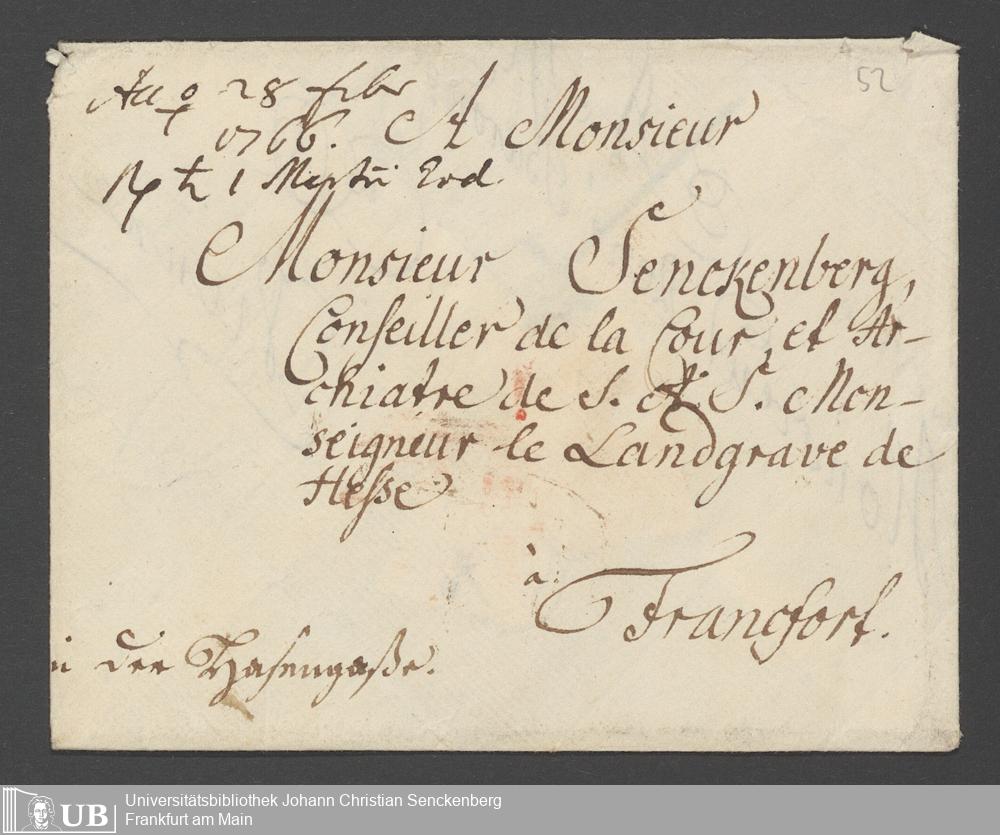 52
Acc ♀ 28 febr
1766.
A Monsieur
1 Martii Eod.
Monsieur Senckenberg,
Conseiller de la Cour, et Ar-
chiatre de S. A. S. Mon-
seigneur le Landgrave de
Hesse
à
Francfort.
in der Hasengaße.
UB
Universitätsbibliothek Johann Christian Senckenberg
Frankfurt am Main